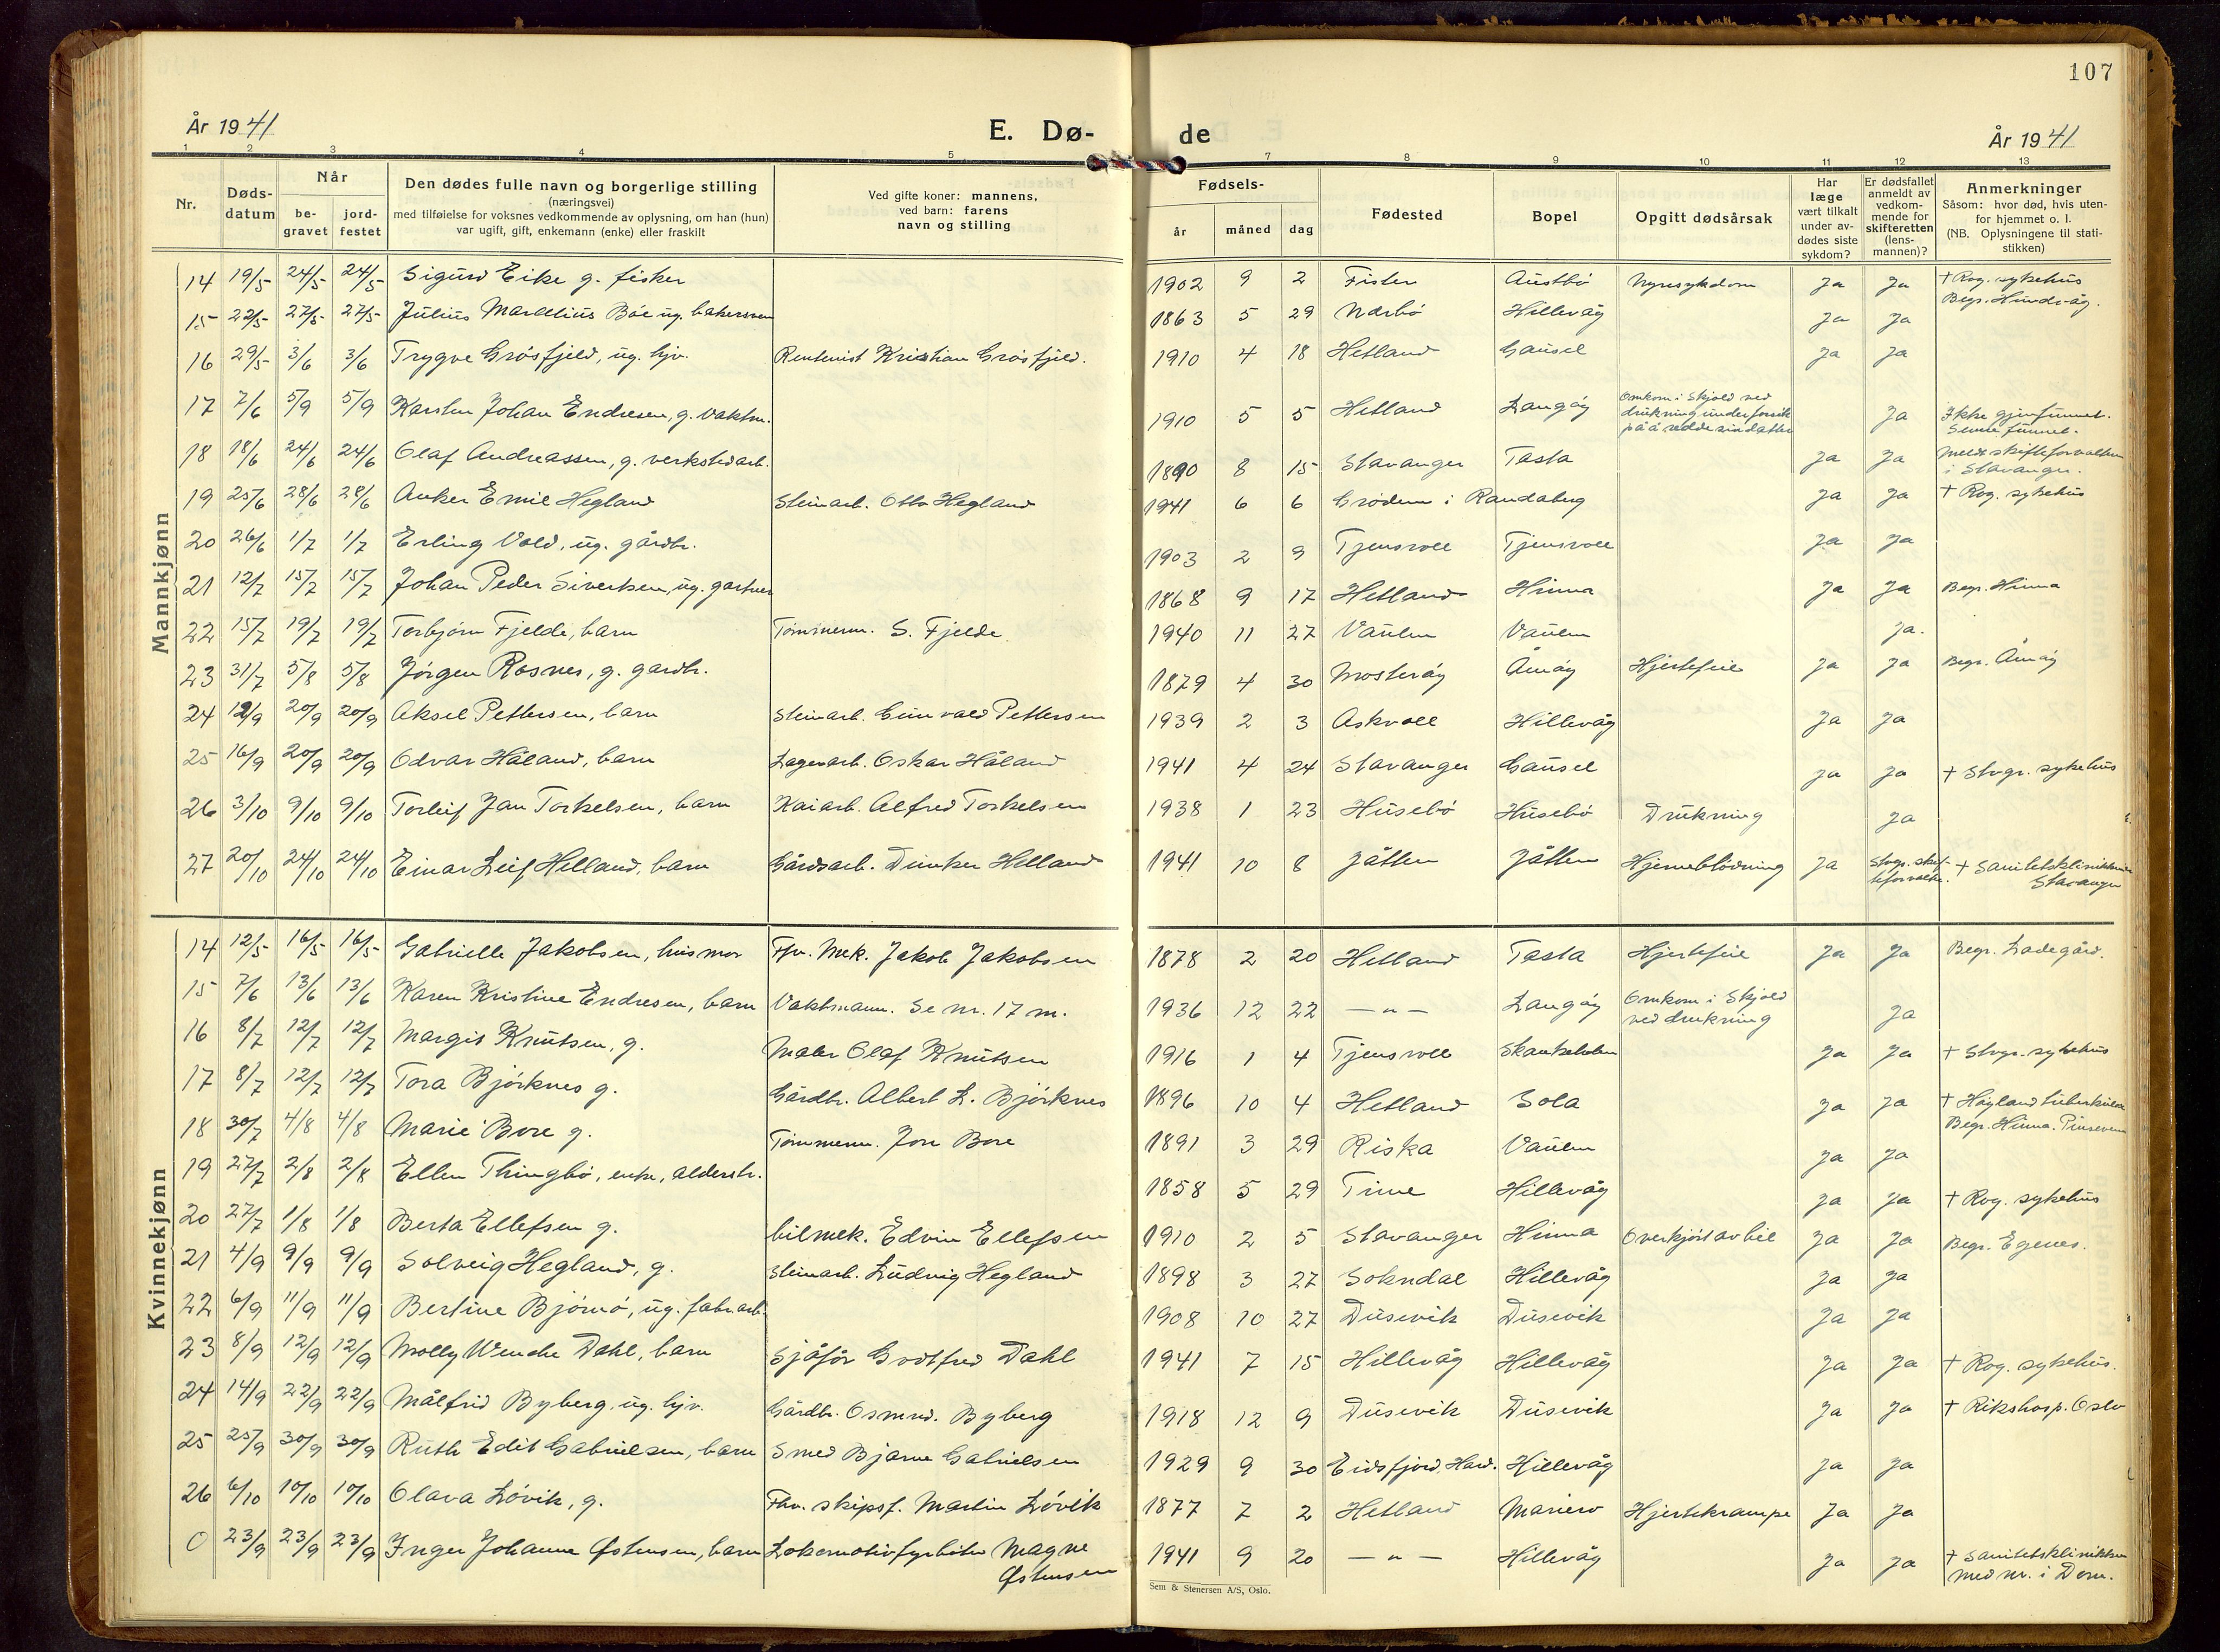 107
År 1941
E. Dø-
de
År 1941
1 2 3 4 5 7 8 9 10 11 12 13
Nr.
Døds-
datum
Når
be-
gravet
jord-
festet
Den dødes fulle navn og borgerlige stilling
(næringsvei)
med tilføielse for voksnes vedkommende av oplysning, om han (hun)
var ugift, gift, enkemann (enke) eller fraskilt
Ved gifte koner: mannens,
ved barn: farens
navn og stilling
Fødsels-
år måned dag
Fødested
Bopel
Opgitt dødsårsak
Har
læge
vært tilkalt
under av-
dødes siste
sykdom?
Er dødsfallet
anmeldt av
vedkom-
mende for
skifteretten
(lens-
mannen)?
Anmerkninger
Såsom: hvor død, hvis uten-
for hjemmet o. l.
(NB. Oplysningene til stati-
stikken)
Mannkjønn
14 19/5 24/5 24/5 Sigurd Eike g. fisker 1902 9 2 Fister Austbø Nyresykdom Ja Ja † Rog. sykehus
Begr. Hundvåg.
15 22/5 27/5 27/5 Julius Marselius Bøe ug. bakersven 1863 5 29 Nærbø Hillevåg Ja Ja
16 29/5 3/6 3/6 Trygve Grøsfjeld, ug. hjv. Rentenist Kristian Grøsfjeld. 1910 4 18 Hetland Gausel Ja Ja
17 7/6 5/9 5/9 Karsten Johan Endresen, g. vaktm. 1910 5 5 Hetland Langøy Omkom i Skjold ved
drukning under forsøk
på å redde sin datter Ja Ikke gjenfunnet.
Senere funnet.
18 18/6 24/6 24/6 Olaf Andreassen, g. verkstedarb. 1890 8 15 Stavanger Tasta Ja Ja Meldt skifteforvalteren
i Stavanger.
19 25/6 28/6 28/6 Anker Emil Hegland Steinarb. Otto Hegland 1941 6 6 Grødem i Randaberg Ja Ja † Rog. sykehus
20 26/6 1/7 1/7 Erling Vold, ug. gårdbr. 1903 2 9 Tjensvoll Tjensvoll Ja Ja
21 12/7 15/7 15/7 Johan Peder Sivertsen, ug. gartner 1868 9 17 Hetland Hinna Ja Ja Begr. Hinna
22 15/7 19/7 19/7 Torbjørn Fjelde, barn Tømmerm. S. Fjelde 1940 11 27 Vaulen Vaulen Ja.
23 31/7 5/8 5/8 Jørgen Rosnes, g. gardbr. 1879 4 30 Mosterøy Åmøy Hjertefeil Ja Ja Begr. Åmøy
24 12/9 20/9 20/9 Aksel Pettersen, barn Steinarb. Gunvald Pettersen 1939 2 3 Askvoll Hillevåg Ja Ja
25 16/9 20/9 20/9 Odvar Håland, barn Lagerarb. Oskar Håland 1941 4 24 Stavanger Gausel Ja Ja † Stvgr. sykehus
26 3/10 9/10 9/10 Torleif Jan Torkelsen, barn Kaiarb. Alfred Torkelsen 1938 1 23 Husebø Husebø Drukning Ja
27 20/10 24/10 24/10 Einar Leif Helland, barn Gårdsarb. Dunker Helland 1941 10 8 Jåtten Jåtten Hjerneblødning Ja Stvgr. skif-
teforvalter. † Sanitetsklinikken
Stavanger
Kvinnekjønn
14 12/5 16/5 16/5 Gabrielle Jakobsen, husmor Fhv. Mek. Jakob Jakobsen 1878 2 20 Hetland Tasta Hjertefeil Ja Ja Begr. Ladegård.
15 7/6 13/6 13/6 Karen Kristine Endresen, barn Vaktmann. Se nr. 17 m. 1936 12 22 — " — Langøy Omkom i Skjold
ved drukning Ja
16 8/7 12/7 12/7 Margit Knutsen, g. Maler Olaf Knutsen 1916 1 4 Tjensvoll Skankeholen Ja Ja † Stvgr. sykehus
17 8/7 12/7 12/7 Tora Bjørknes g. Gårdbr. Albert L. Bjørknes 1896 10 4 Hetland Sola Ja Ja † Høyland tuberkulose
Begr. Hinna.
18 30/7 4/8 4/8 Marie Bore g. Tømmerm. Jon Bore 1891 3 29 Riska Vaulen Ja Ja
19 27/7 2/8 2/8 Ellen Thingbø, enke, alderstr. 1858 5 29 Time Hillevåg Ja Ja † Rog. sykehus
20 27/7 1/8 1/8 Berta Ellefsen g. bilmek. Edvin Ellefsen 1910 2 5 Stavanger Hinna Overkjørt av bil Ja Ja Begr. Egenes.
21 4/9 9/9 9/9 Solveig Hegland, g. Steinarb. Ludvig Hegland 1898 3 27 Sokndal Hillevåg Ja Ja
22 6/9 11/9 11/9 Bertine Bjørnø, ug. fabr.arb. 1908 10 27 Dusevik Dusevik Ja Ja
23 8/9 12/9 12/9 Molly Wenche Dahl, barn Sjåfør Godtfred Dahl 1941 7 15 Hillevåg Hillevåg Ja Ja † Rog. sykehus.
24 14/9 22/9 22/9 Målfrid Byberg, ug. hjv. Gårdbr. Osmund. Byberg 1918 12 9 Dusevik Dusevik Ja Ja † Rikshosp. Oslo
25 25/9 30/9 30/9 Ruth Edit Gabrielsen, barn Smed Bjarne Gabrielsen 1929 9 30 Eidsfjord, Hard. Hillevåg Ja Ja
26 6/10 10/10 10/10 Olava Løvik, g. Fhv. skipsf. Martin Løvik 1877 7 2 Hetland Mariero Hjertekrampe Ja Ja
0 23/9 23/9 23/9 Inger Johanne Østensen, barn Lokomotivfyrbøter Magne
Østensen 1941 9 20 — " — Hillevåg Ja Ja † Sanitetsklinikken
med nr. i Dom.
Sem & Stenersen A/S, Oslo.